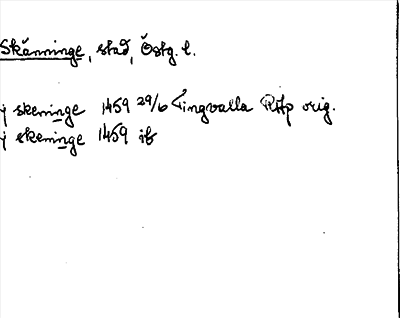 Skänninge, stad, Östg. l.
j skeninge 1459 29/6 Tingvalla RAp orig.
j skeninge 1459 ib